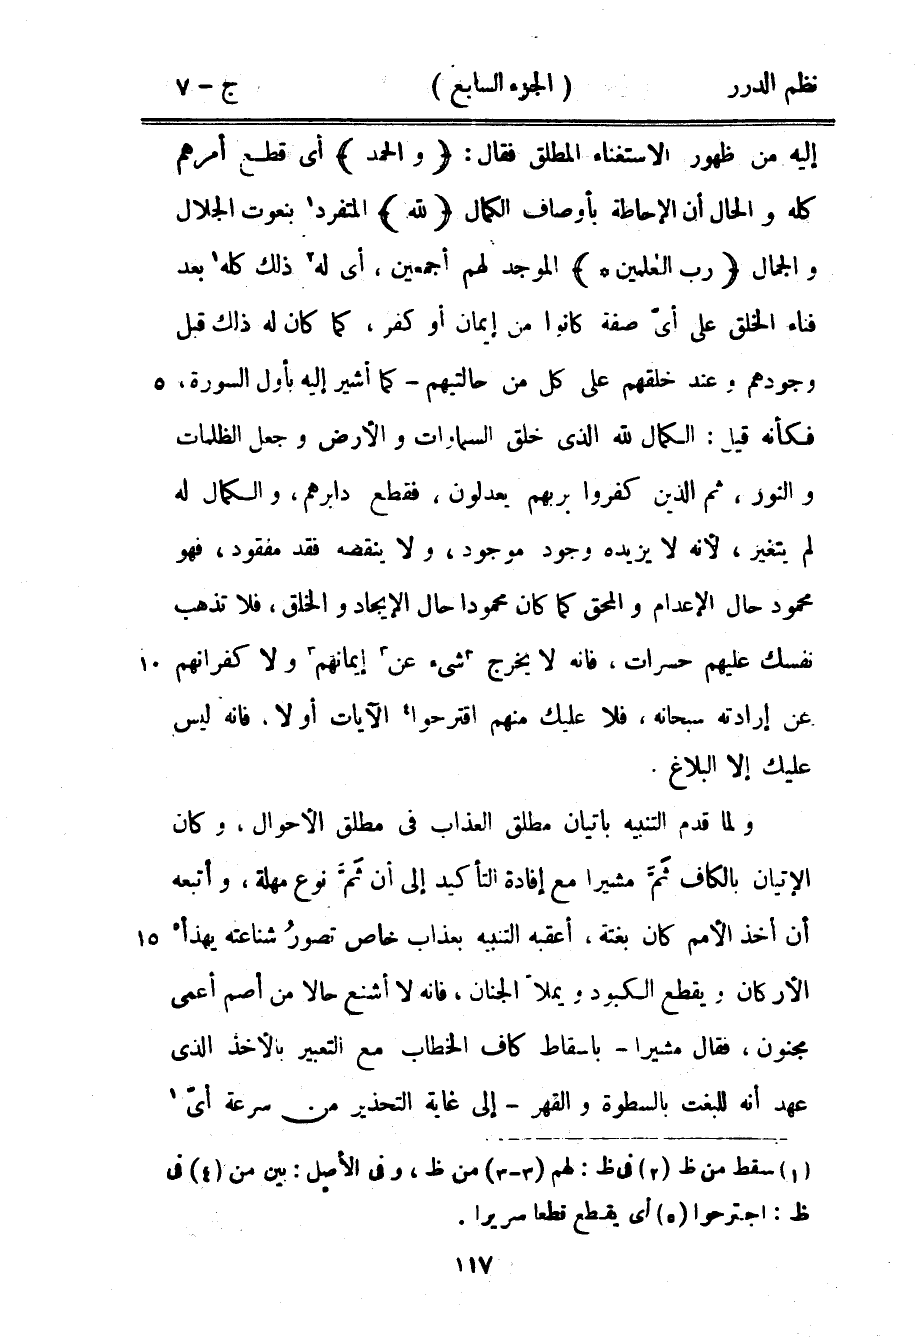 نظم الدرر ( الجزء السابع ) ج - ٧
إليه من ظهور الاستغناء المطلق فقال : ﴿ و الحمد ﴾ أى قطع أمرهم
كله و الحال أن الإحاطة بأوصاف الكمال ﴿ لله ﴾ المتفرد١ بنعوت الجلال
و الجمال ﴿ رب العٰلمين ٥ ﴾ الموجد لهم أجمعين ، أى له٢ ذلك كله١ بعد
فناء الخلق على أىّ صفة كانوا من إيمان أو كفر ، كما كان له ذلك قبل
وجودهم و عند خلقهم على كل من حالتيهم - كما أشير إليه بأول السورة ، ٥
فكأنه قيل : الكمال لله الذى خلق السماوات و الأرض و جعل الظلمات
و النور ، ثم الذين كفروا بربهم يعدلون ، فقطع دابرهم ، و الكمال له
لم يتغير ، لأنه لا يزيده وجود موجود ، و لا ينقصه فقد مفقود ، فهو
محمود حال الإعدام و المحق كما كان محمودا حال الإيجاد و الخلق ، فلا تذهب
نفسك عليهم حسرات ، فانه لا يخرج ٣شىء عن٣ إيمانهم٣ و لا كفرانهم ١٠
عن إرادته سبحانه ، فلا عليك منهم اقترحوا٤ الآيات أو لا . فانه ليس
عليك إلا البلاغ .
و لما قدم التنبيه بأتيان مطلق العذاب فى مطلق الأحوال ، و كان
الإتيان بالكاف ثَمَّ مشيرا مع إفادة التأكيد إلى أن ثَمَّ نوع مهلة ، و أتبعه
أن أخذ الأمم كان بغتة ، أعقبه التنبيه بعذاب خاص تصورُ شناعته يهذأ٥ ١٥
الأركان و يقطع الكبود و يملأ الجنان ، فانه لا أشنع حالا من أصم أعمى
مجنون ، فقال مشيرا - باسقاط كاف الخطاب مع التعبير بالأخذ الذى
عهد أنه للبغت بالسطوة و القهر - إلى غاية التحذير من سرعة أىّ١
(١) سقط من ظ (٢) فى ظ : لهم (٣-٣) من ظ ، و فى الأصل : بين من (٤) فى
ظ : اجترحوا (٥) أى يقطع قطعا سريرا .
١١٧